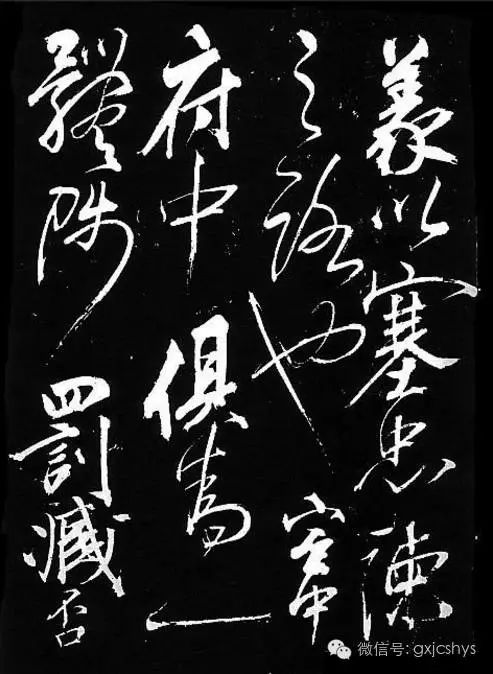 義以塞忠諫
之路也宮中
府中俱為一
體陟罰臧否
微信号: gxjcshys